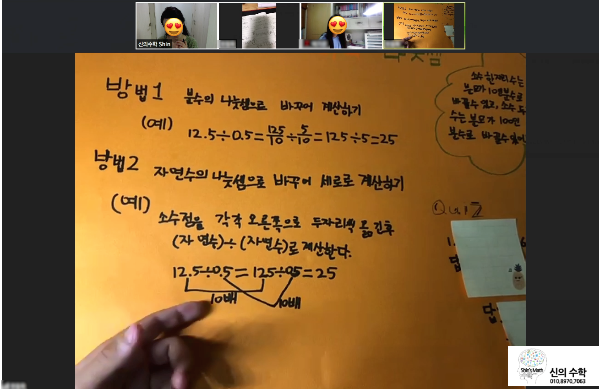 신의수학 Shin
방법1 분수의 나눗셈으로 바꾸어 계산하기
(예) 12.5÷0.5=125/10÷5/10=125÷5=25
방법2 자연수의 나눗셈으로 바꾸어 세로로 계산하기
(예) 소수점을 각각 오른쪽으로 두자리씩 옮긴후
(자연수)÷(자연수)로 계산한다.
12.5÷0.5=125÷05=25
10배 10배
소수 한자리수는
분모가 10인분수로
바꿀수 있고, 소수 두
수는 분모가 100인
분수로 바꿀수 있어
Quiz
1.
답
답
Shin's Math
신의 수학
010.8970.7063